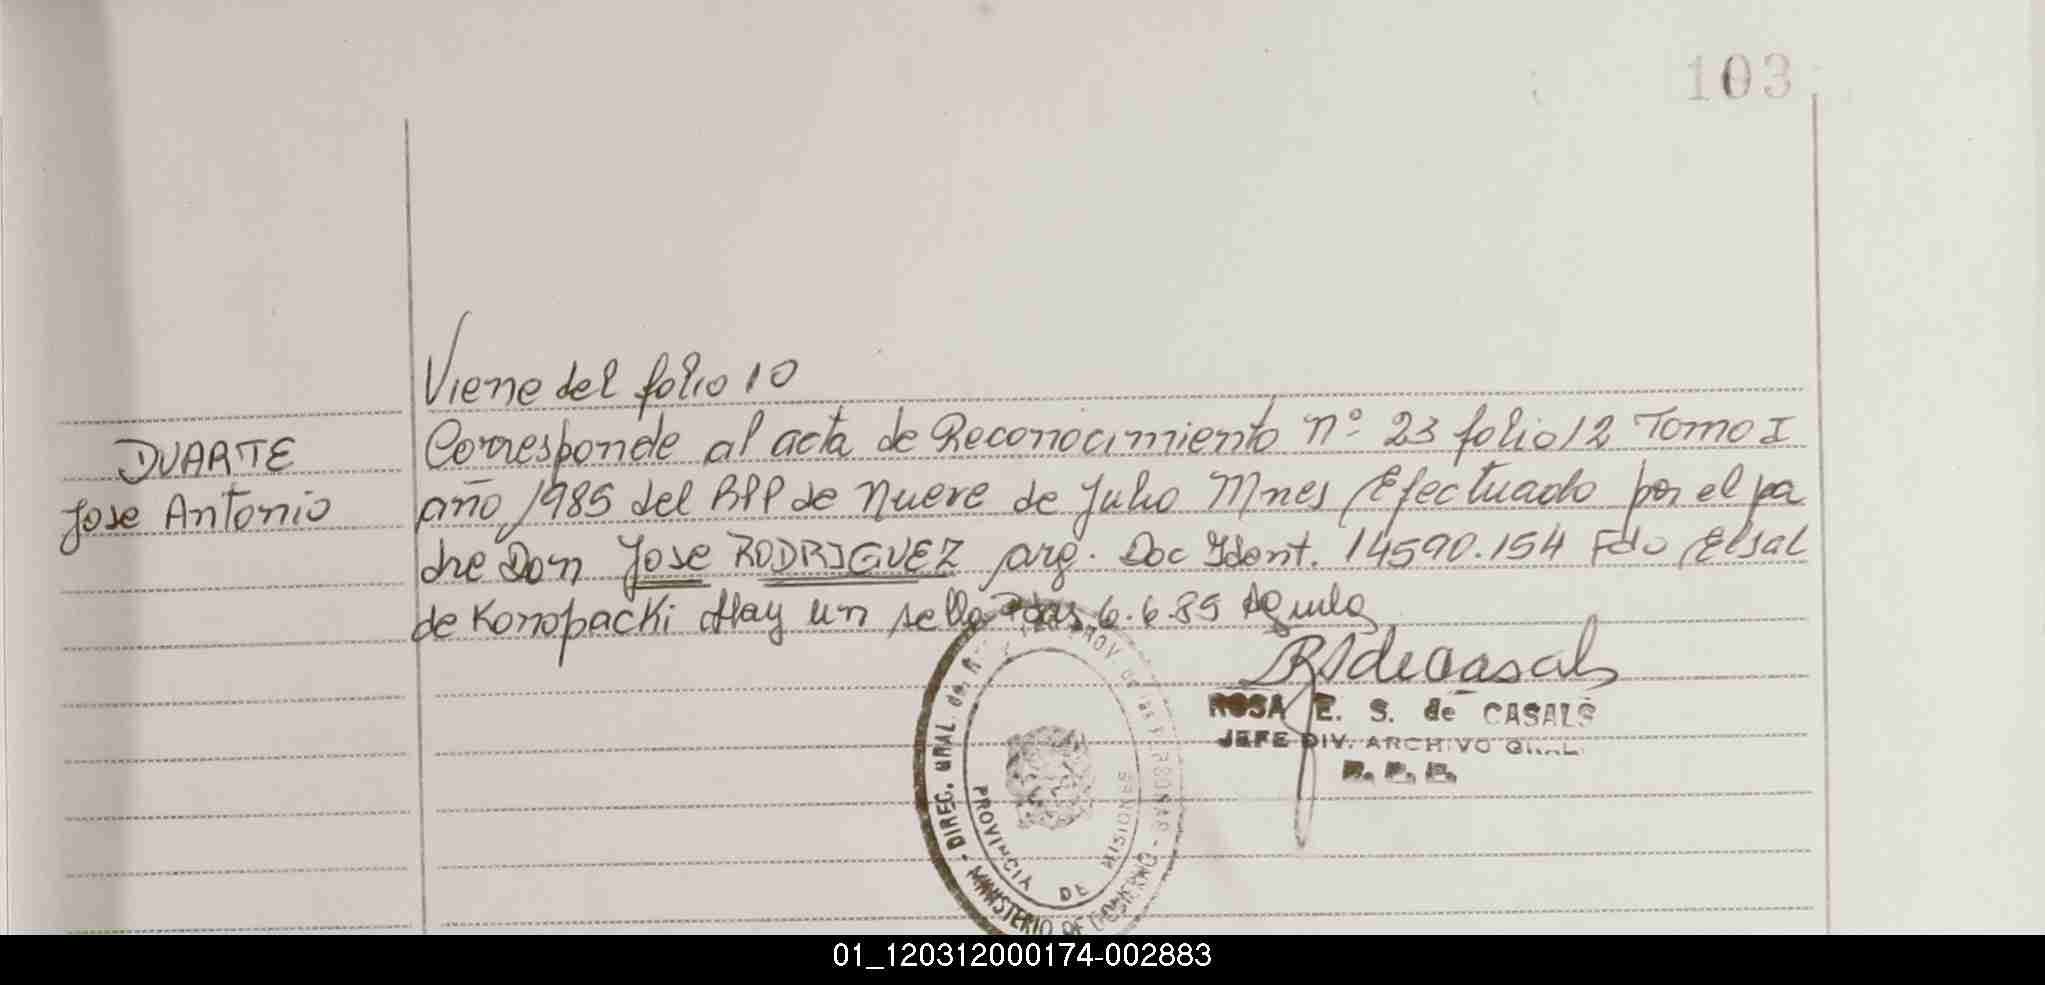 103
Viene del folio 10
DUARTE
Jose Antonio
Corresponde al acta de Reconocimiento nº 23 folio 12 Tomo I
año 1985 del RPP de Nueve de Julio Mnes Efectuado por el pa
dre Don Jose RODRIGUEZ arg. Doc Ident. 14590.154 Fdo Elsa
de Konopacki Hay un sello Pdas 6.6.85
ROSA E. S. de CASALS
JEFE DIV. ARCHIVO GRAL.
R. P. P.
DIREC. GRAL. de PROV de las PERSONAS - MINISTERIO DE GOBIERNO -
PROVINCIA DE MISIONES
01_120312000174-002883